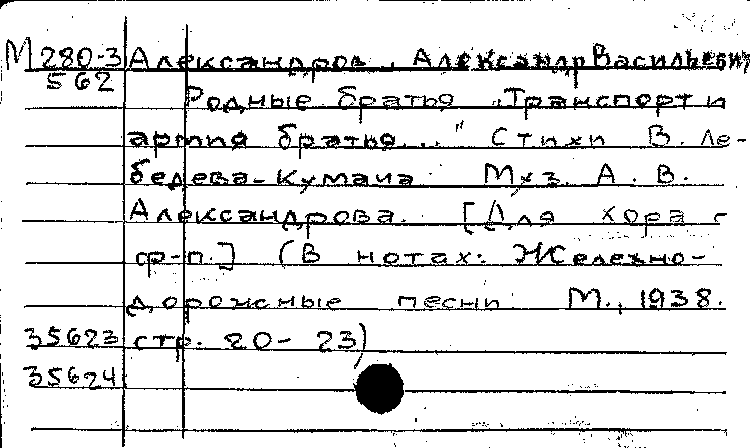 М 280-3 Александров, Александр Васильевич
562
Родные братья „Транспорт и
армия братья..." Стихи В. Ле-
бедева-Кумача Муз. А. В.
Александрова. [Для хора с
ф-п.] (В нотах: Железно-
дорожные песни М., 1938.
35623 стр. 20-23)
35624